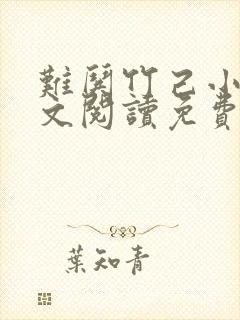 難關竹己小
文閱讀免費
葉知青